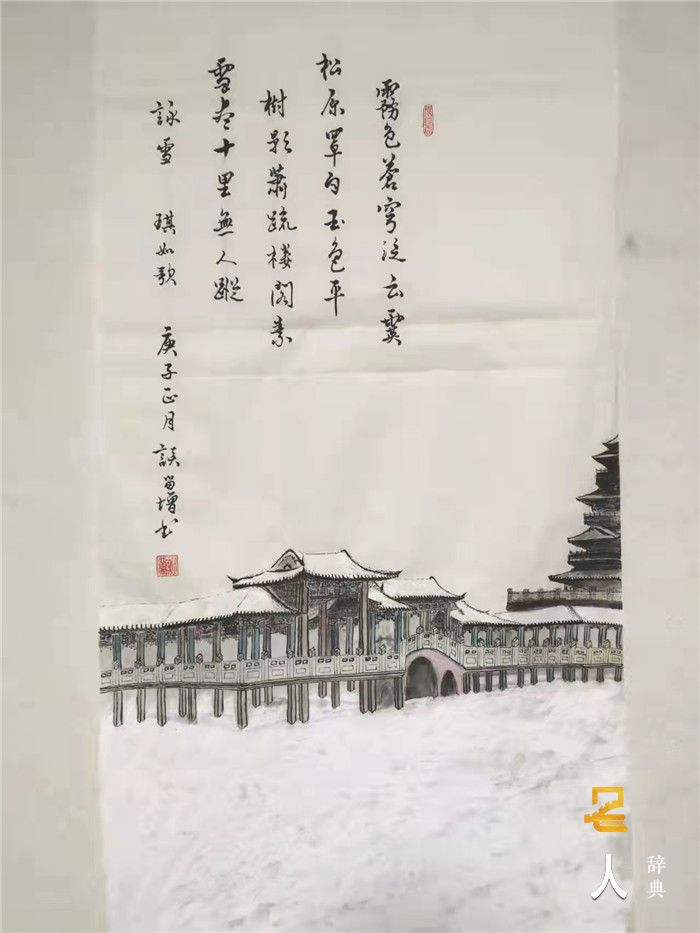 霧色蒼穹泛云霙
松原罩白玉色平
樹影蕭疏樓閣素
雪盡十里無人蹤
詠雪 琪如歌 庚子正月 談留增书
名
人
辞典